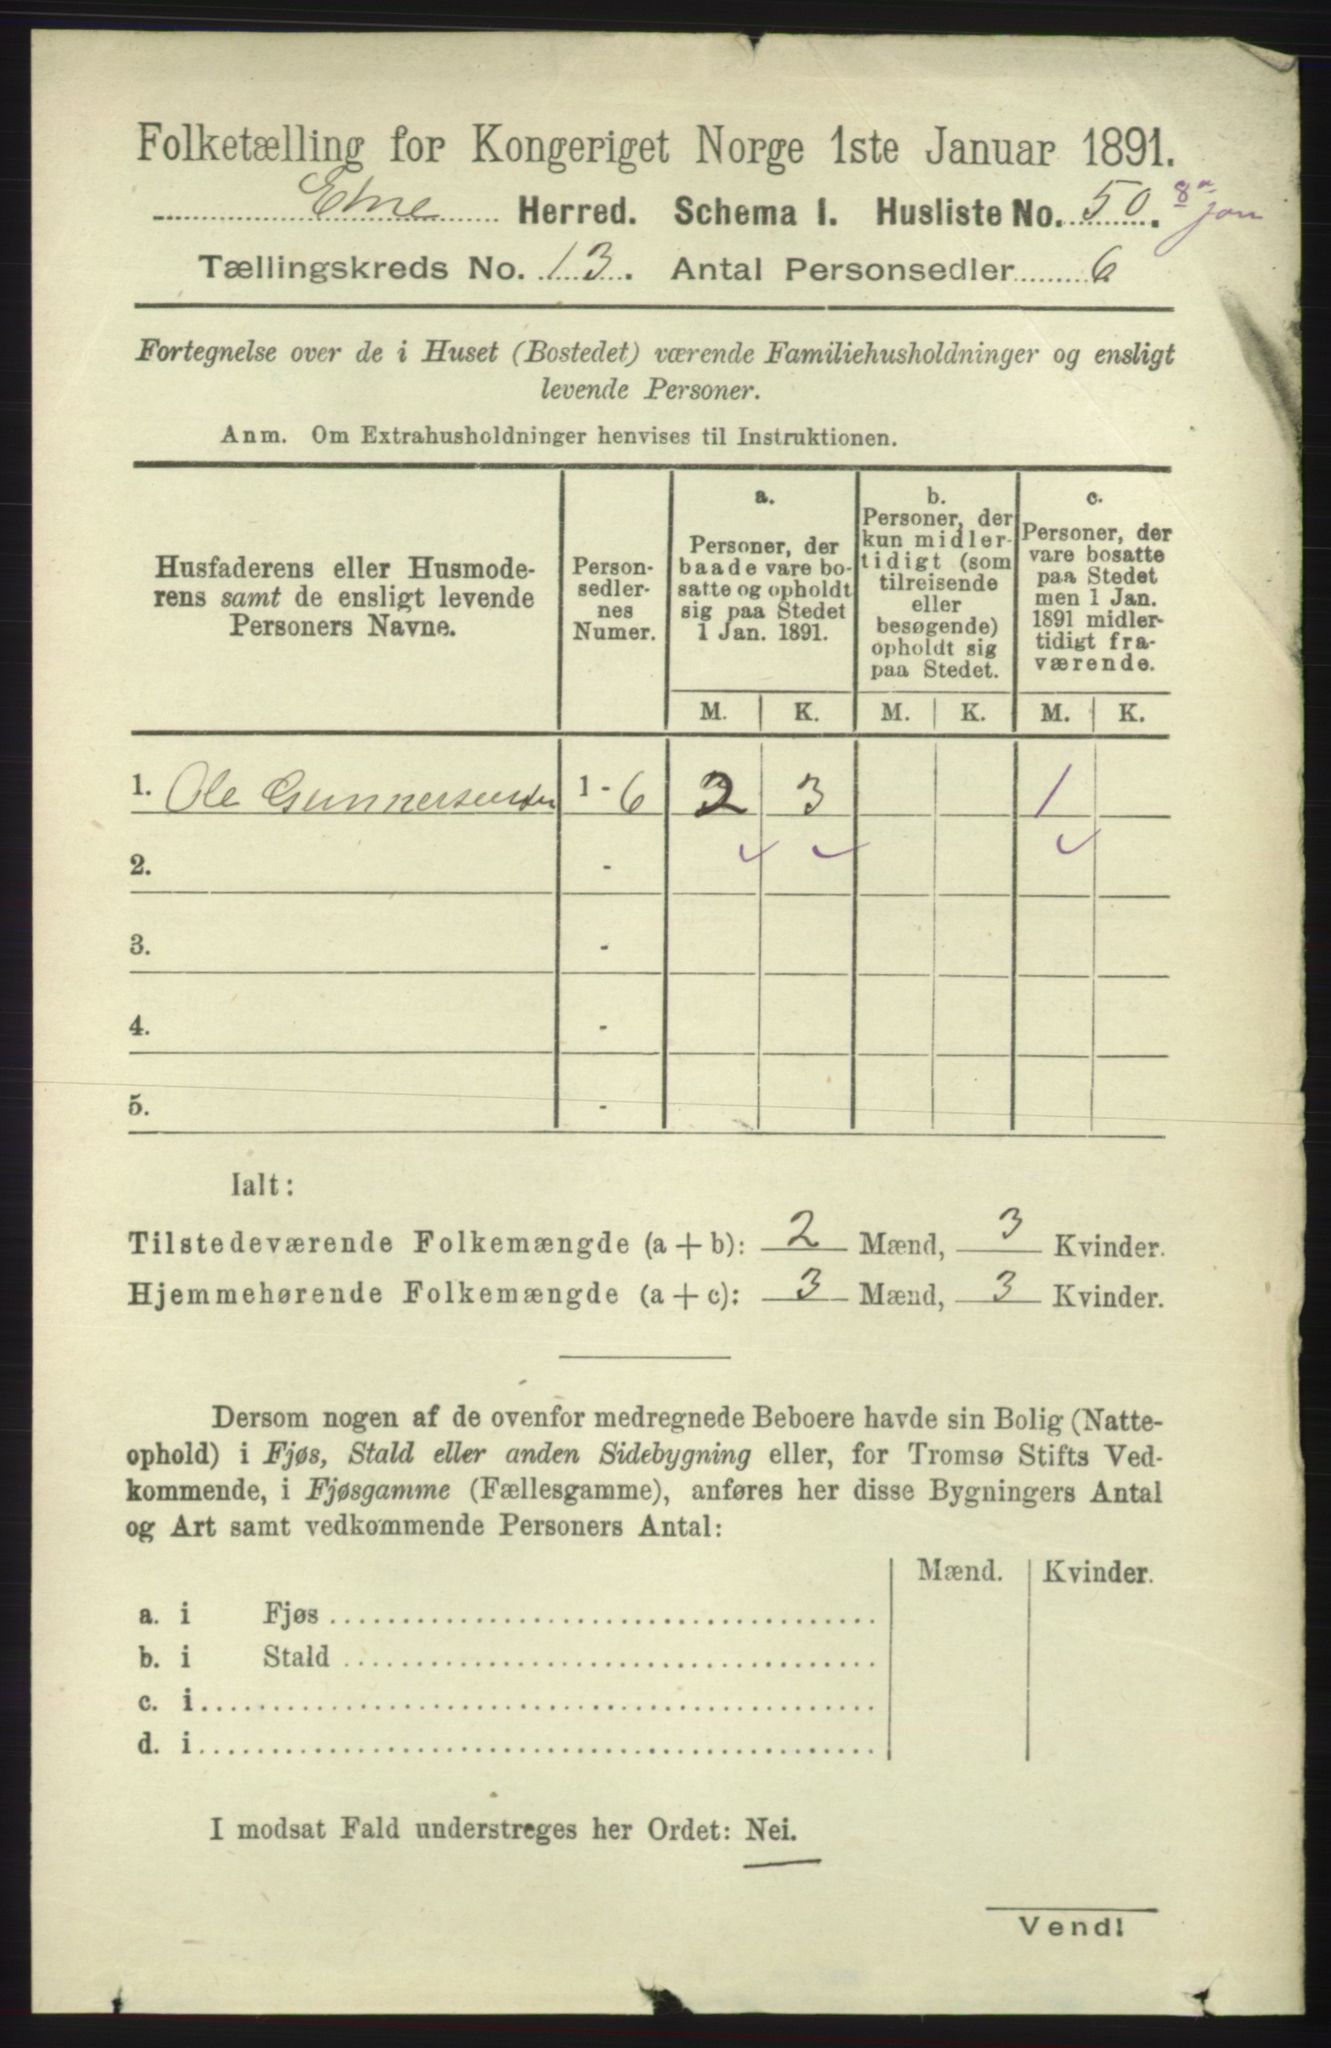 Folketælling for Kongeriget Norge 1ste Januar 1891.
Etne Herred. Schema I. Husliste No. 50. 8
Tællingskreds No. 13. Antal Personsedler 6
Fortegnelse over de i Huset (Bostedet) værende Familiehusholdninger og ensligt
levende Personer.
Anm. Om Extrahusholdninger henvises til Instruktionen.
Husfaderens eller Husmode-
rens samt de ensligt levende
Personers Navne.
Person-
sedler-
nes
Numer.
a.
Personer, der
baade vare bo-
satte og opholdt
sig paa Stedet
1 Jan. 1891.
b.
Personer, der
kun midler-
tidigt (som
tilreisende
eller
besøgende)
opholdt sig
paa Stedet.
c.
Personer, der
vare bosatte
paa Stedet
men 1 Jan.
1891 midler-
tidigt fra-
værende.
M. K. M. K. M. K.
1. Ole 1 - 6 2 3 1
2. -
3. -
4. -
5. -
Ialt:
Tilstedeværende Folkemængde (a + b): 2 Mænd, 3 Kvinder.
Hjemmehørende Folkemængde (a + c): 3 Mænd, 3 Kvinder.
Dersom nogen af de ovenfor medregnede Beboere havde sin Bolig (Natte-
ophold) i Fjøs, Stald eller anden Sidebygning eller, for Tromsø Stifts Ved-
kommende, i Fjøsgamme (Fællesgamme), anføres her disse Bygningers Antal
og Art samt vedkommende Personers Antal:
Mænd. Kvinder.
a. i Fjøs
b. i Stald
c. i
d. i
I modsat Fald understreges her Ordet: Nei.
Vend!